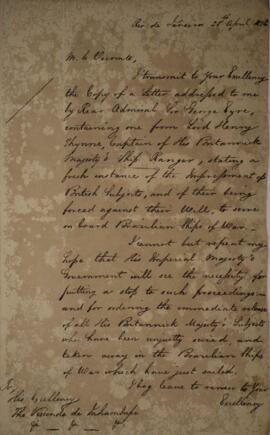 Rio de Janeiro 28th April
M. le Vicomte,
I transmit to Your Excellency
the Copy of a Letter addressed to me
by Rear Admiral Sir George Eyre,
containing one from Lord Henry
Thynne, Captain of His Britannick
Majesty's Ship Ranger, stating a
fresh instance of the Impressment of
British Subjects, and of their being
forced against their Will, to serve
on board Brazilian Ships of War.
I cannot but repeat my
hope that His Imperial Majesty's
Government will see the necessity for
putting a stop to such proceedings
and for ordering the immediate release
of all His Britannick Majesty's Subjects
who have been unjustly seized, and
taken away in the Brazilian Ships
of War which have just sailed.
I beg leave to renew to Your
His Excellency
Excellency
The Visconde de Inhambupe
&c &c &c